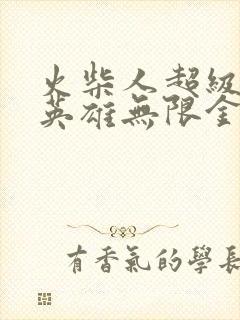 火柴人超級
英雄無限金
有香氣的學長